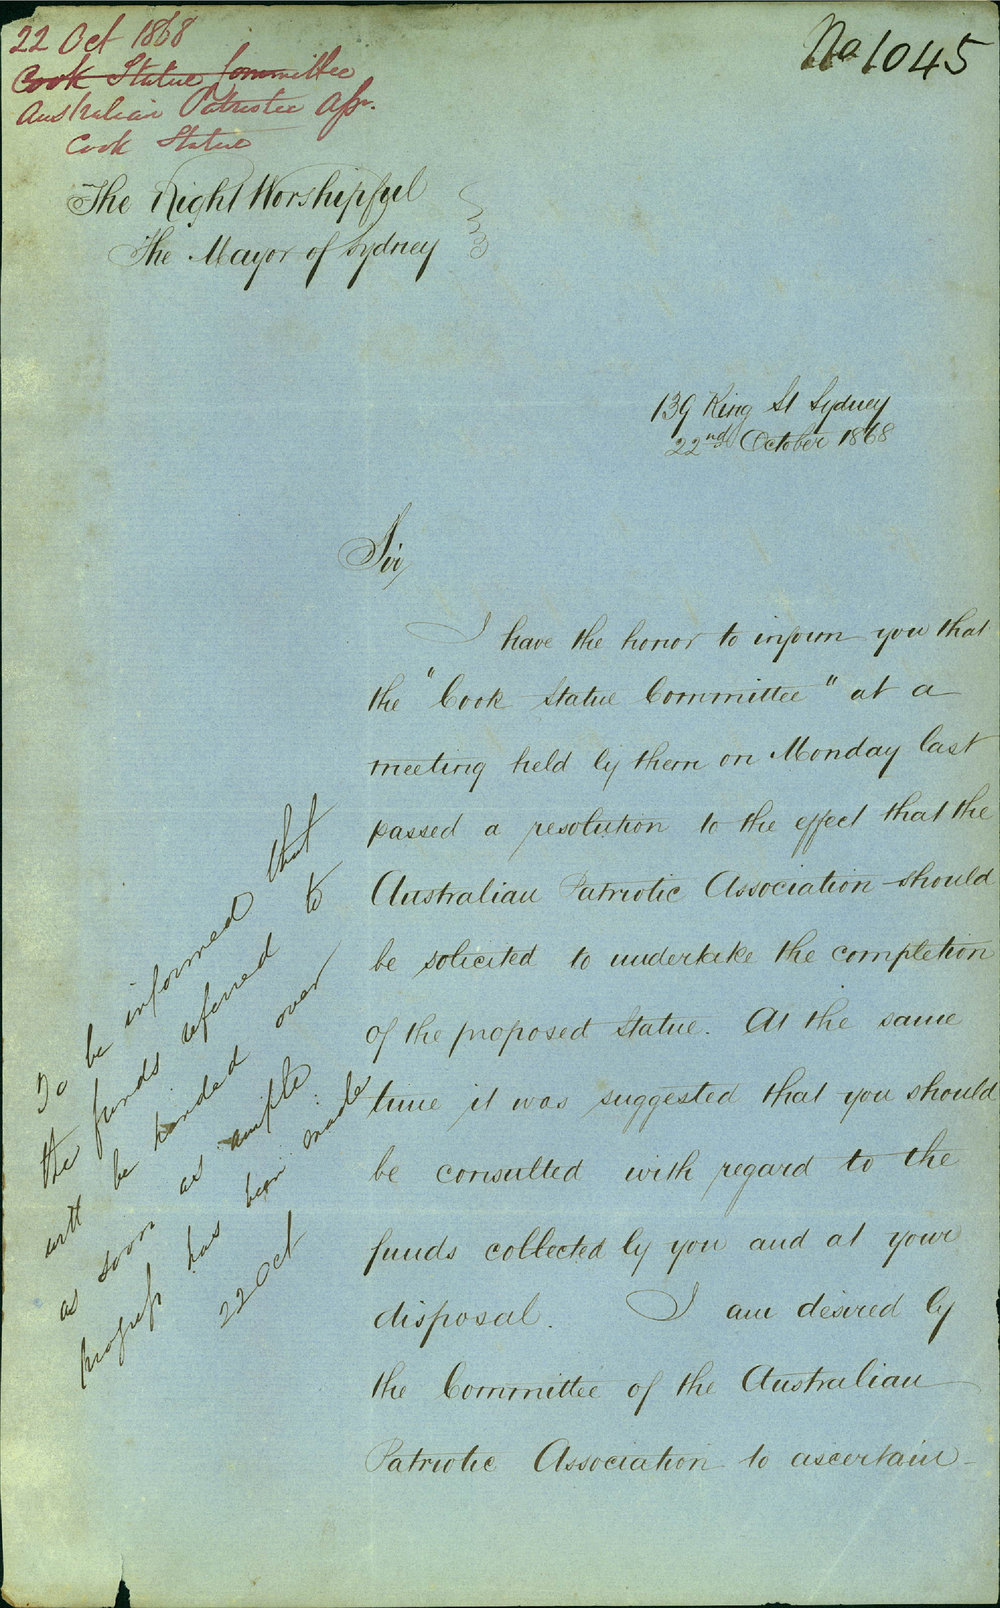 22 Oct 1868
Cook Statue Committee
Australian Patriotic Assn.
Cook Statue
No 1045
The Right Worshipful
The Mayor of Sydney
139 King St Sydney
22nd October 1868
Sir,
I have the honor to inform you that
the "Cook Statue Committee" at a
meeting held by them on Monday last
passed a resolution to the effect that the
Australian Patriotic Association should
be solicited to undertake the completion
of the proposed Statue. At the same
time it was suggested that you should
be consulted with regard to the
funds collected by you and at your
disposal. I am desired by
the Committee of the Australian
Patriotic Association to ascertain
To be informed that
the funds referred to
will be handed over
as soon as ample
progress has been made
22 Oct